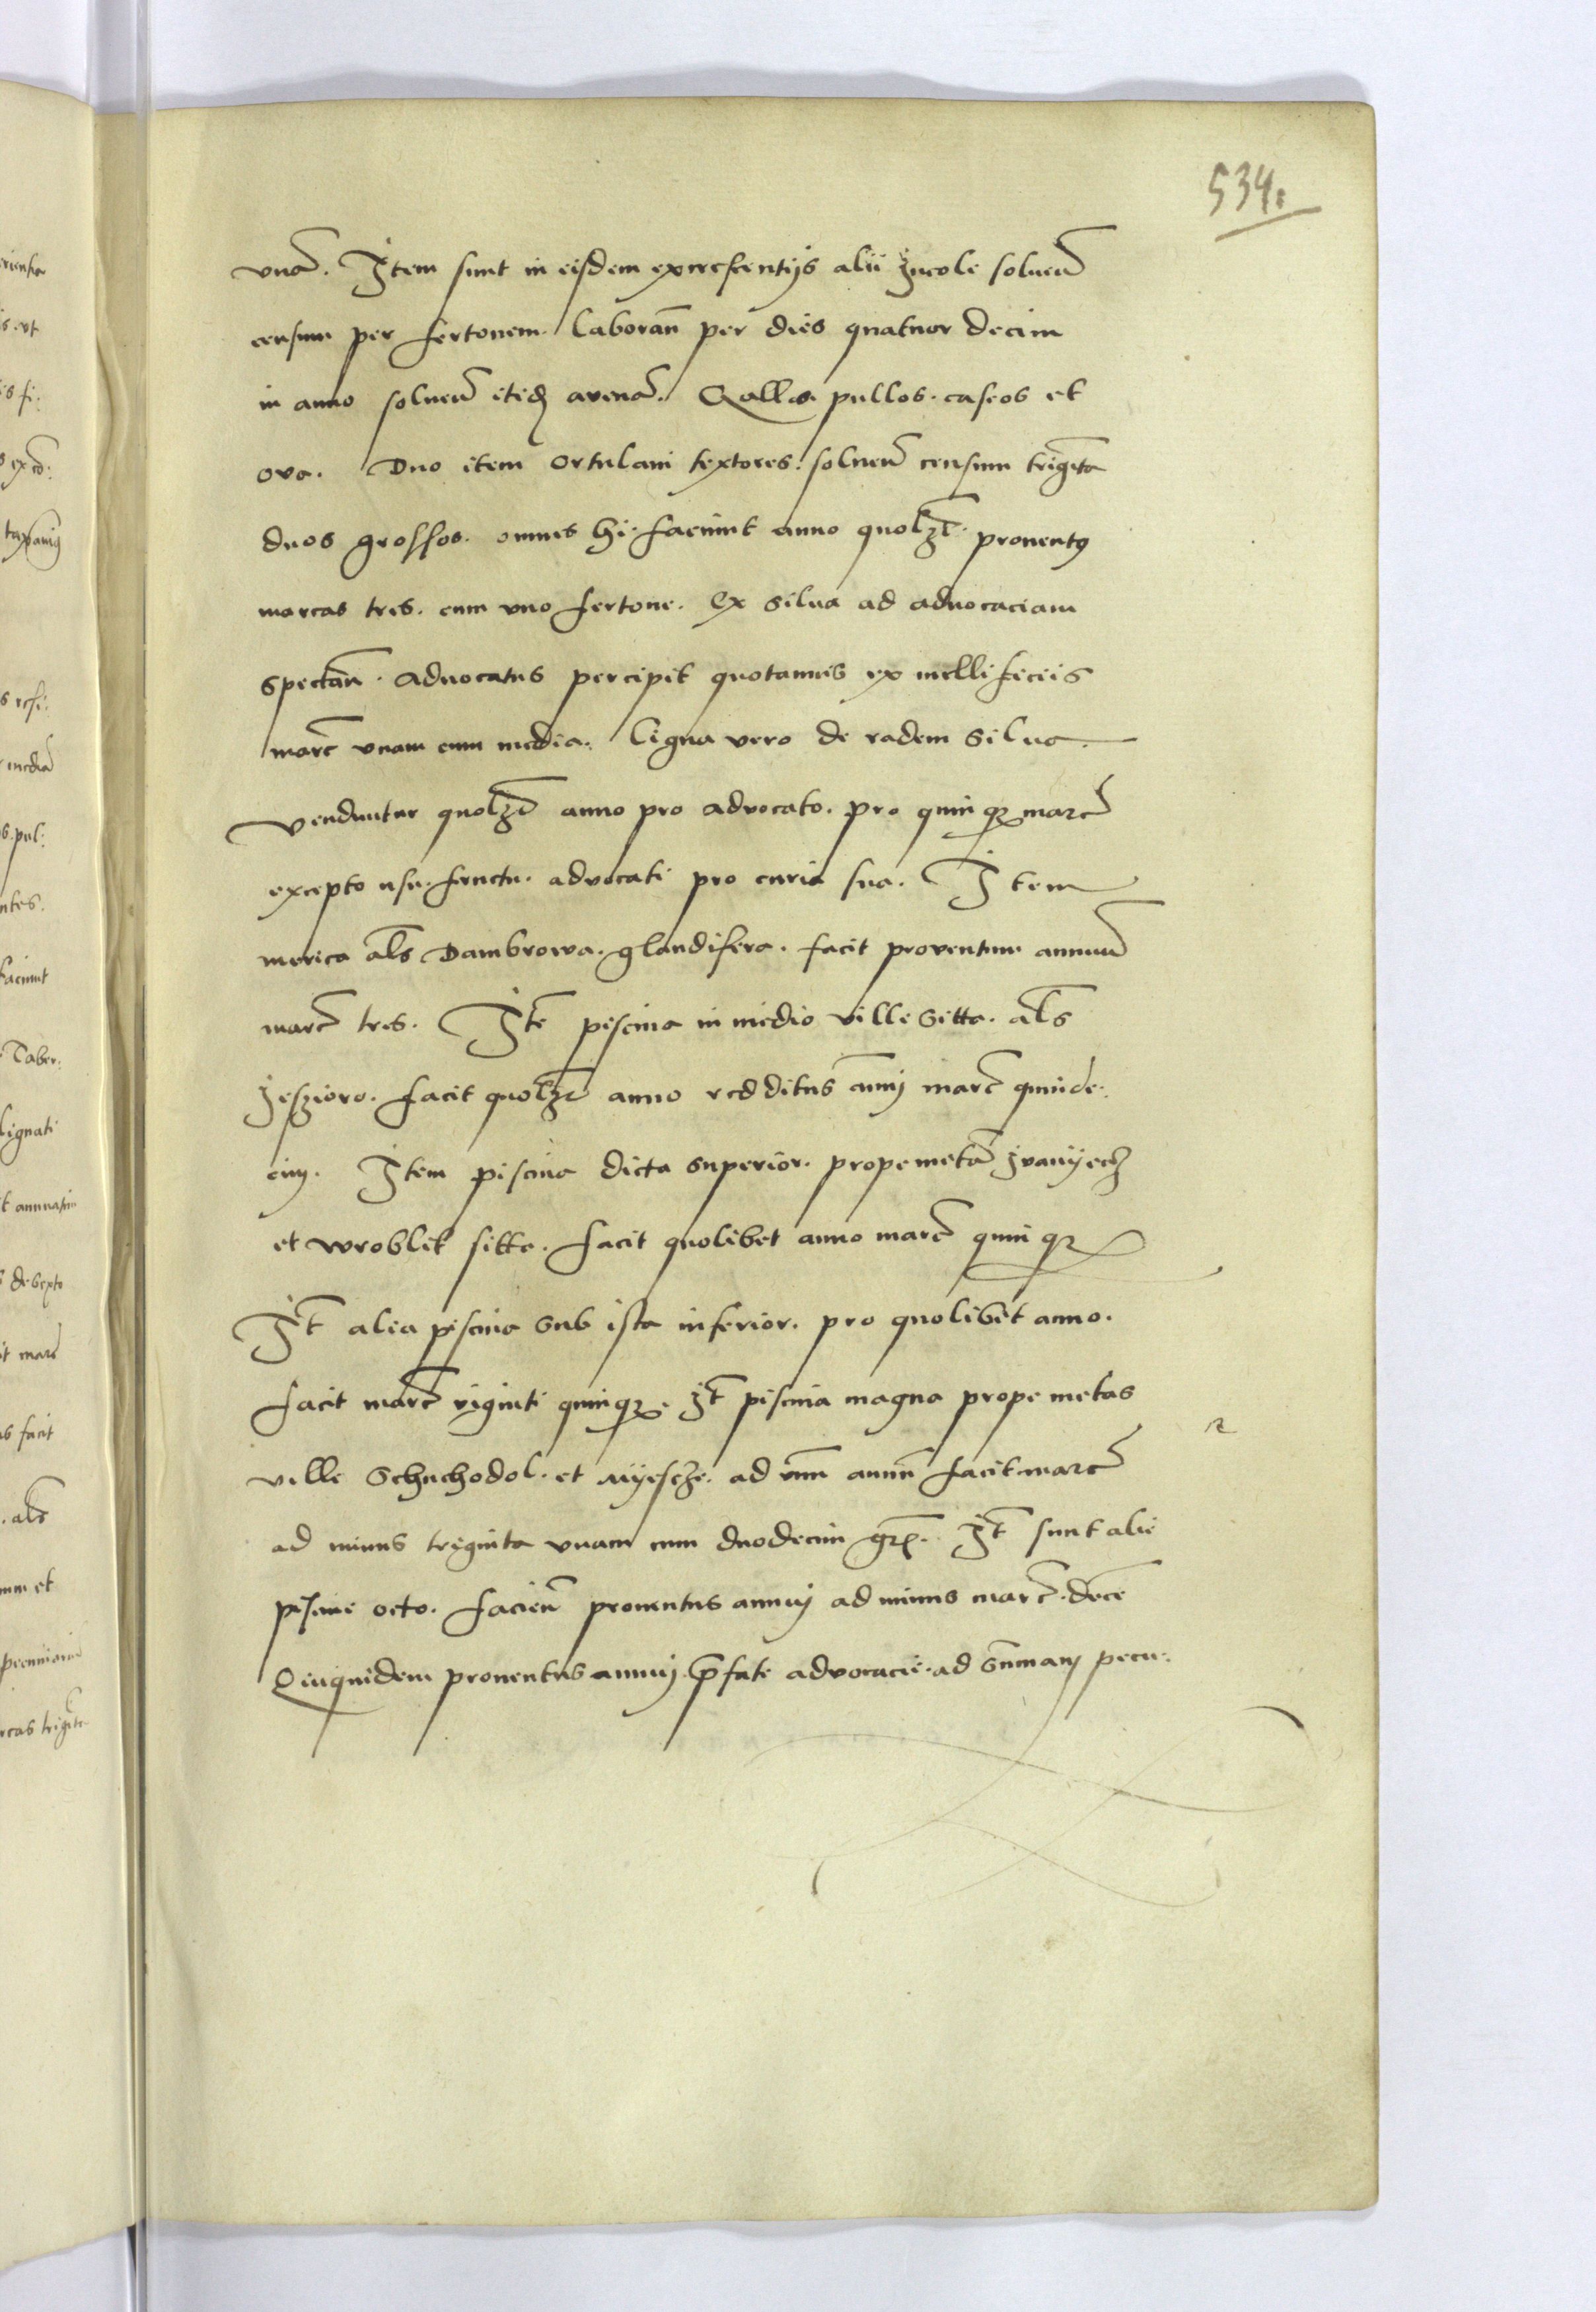 534.
vnā. Item sunt in eisdem excrescentijs alii Incole soluen̄
censum per fertonem. Laboran̄ per dies quatuor decim
in anno soluen̄ itidē avenā. Gallos. pullos. caseos et
ova. Duo item ortulani textores. soluen̄ censum trigīta
duos grossos. omnes hi faciunt anno quolȝt̄ prouentꝰ
marcas tres. cum vno fertone. Ex silua ad aduocaciam
spectan̄. Aduocatus percipit quotannis ex mellificiis
marc̄ vnam cum media. Ligna vero de eadem silua
venduntur quolȝt̄ anno pro advocato. pro quinqꝫ marc̄
excepto usu. fructu. advocati pro curia sua. Item
merica al̄s Dambrowa. glandifera. facit proventum annuū
marc̄ tres. Itē piscina in medio ville sitta. al̄s
Jeszioro. facit quolȝt̄ anno redditus an̄uj marc̄ quinde:
cim. Item piscina dicta superior. prope metā
et wroblik sitta. facit quolibet anno marc̄ quinqꝫ
It̄ alia piscina sub ista inferior. pro quolibet anno.
facit marc̄ viginti quinqꝫ. It̄ piscina magna prope metas
ville Schuchodol. et Myescze. ad vnū annū facit marc̄
ad minus triginta vnam cum duodecim gr̄. It̄ sunt alie
piscine octo. facien̄ prouentus annuj ad minus marc̄. decē
Quiquidem prouentus annuj. p̄fate advocacie. ad sum̄am pecu: